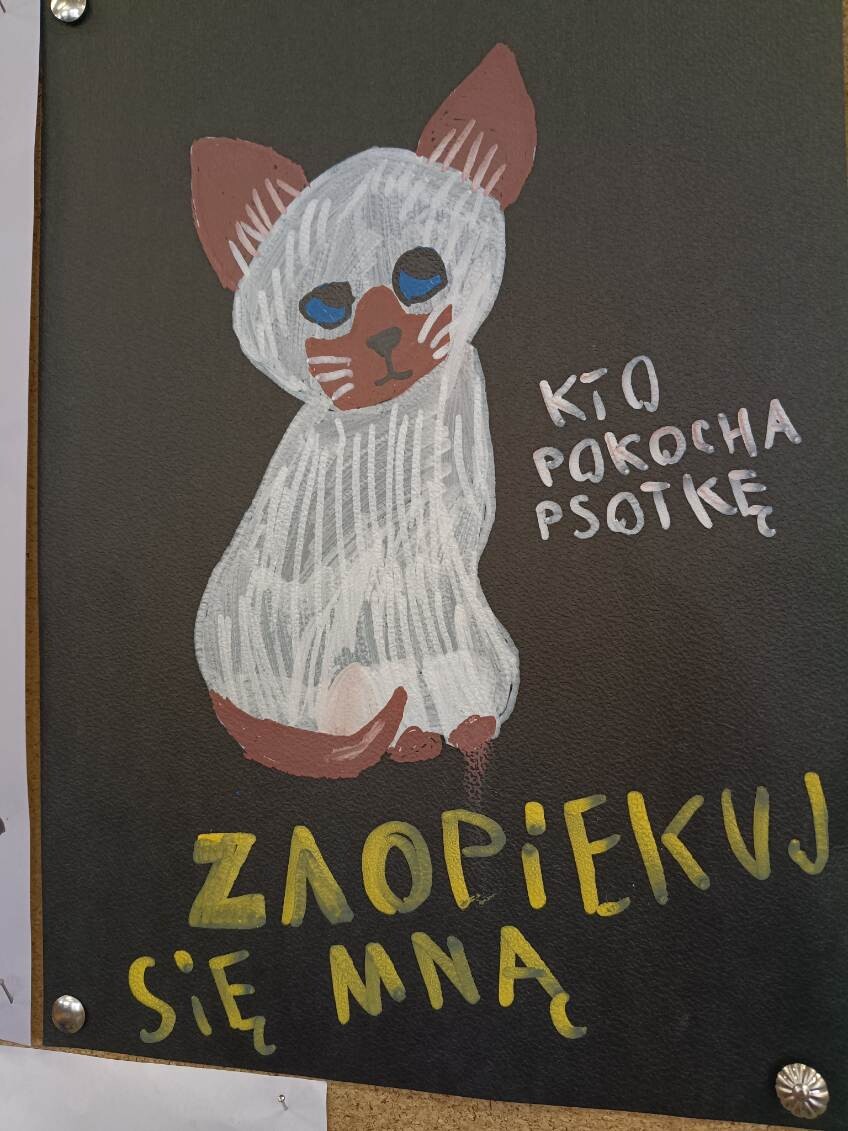 KTO
POKOCHA
PSOTKĘ
ZAOPIEKUJ
SIĘ MNĄ